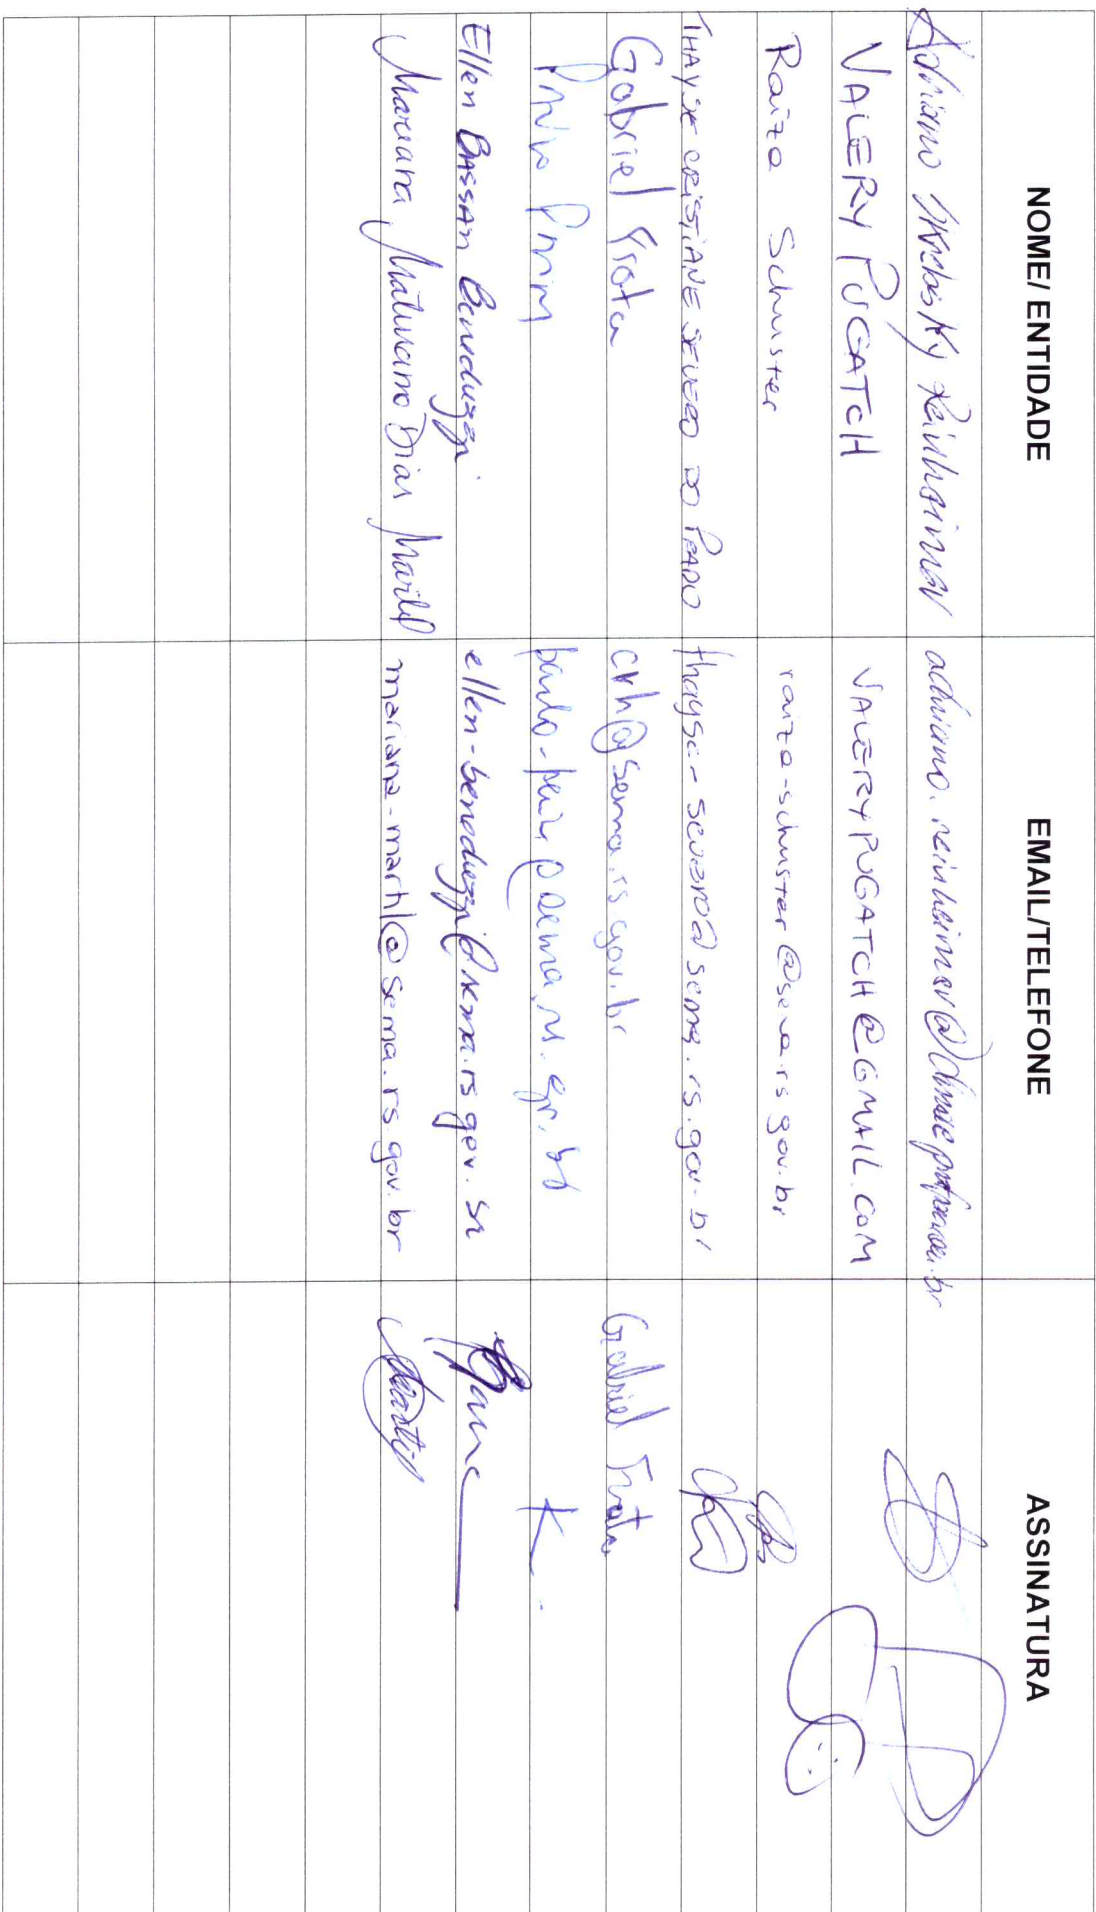 NOME/ ENTIDADE EMAIL/TELEFONE ASSINATURA
Adriano Skrebsky Reinheimer adriano.reinheimer@
VALERY PUGATCH VALERYPUGATCH@GMAIL.COM
Raiza Schuster raiza-schuster@sema.rs.gov.br
THAYSE CRISTIANE SEVERO DO PRADO thayse-severo@sema.rs.gov.br
Gabriel Frota crh@sema.rs.gov.br Gabriel Frota
Paulo paulo-paim@sema.rs.gov.br
Ellen BASSAN Beneduzzi ellen-beneduzzi@sema.rs.gov.br
Mariana Dias Marthl mariana-marthl@sema.rs.gov.br